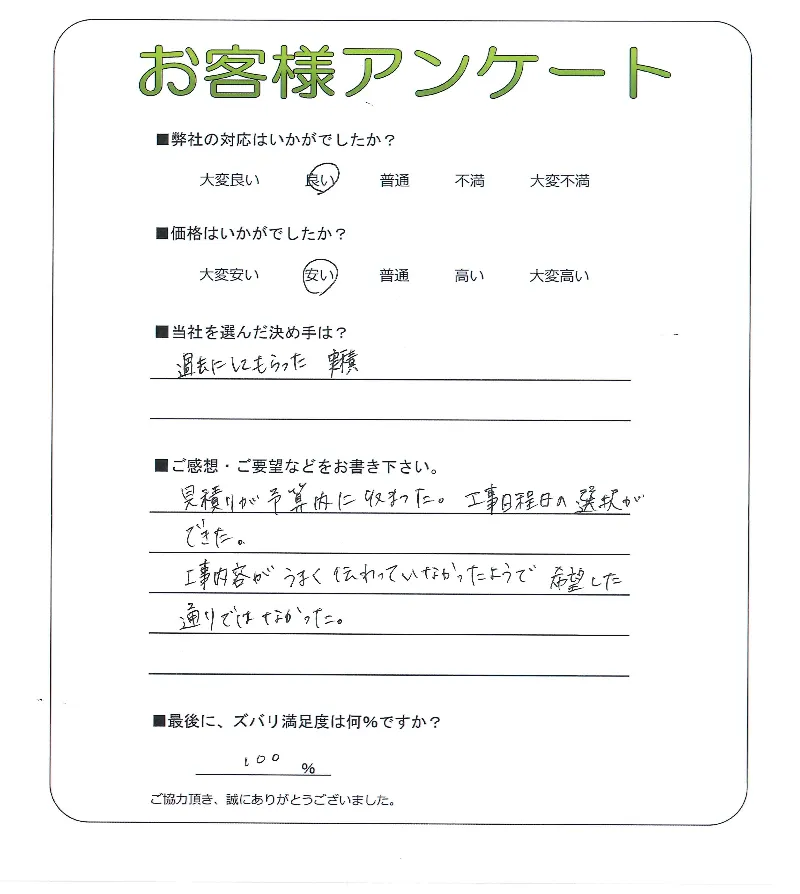 お客様アンケート
■弊社の対応はいかがでしたか？
大変良い 良い 普通 不満 大変不満
■価格はいかがでしたか？
大変安い 安い 普通 高い 大変高い
■当社を選んだ決め手は？
過去にしてもらった 実績
■ご感想・ご要望などをお書き下さい。
見積りが予算内に収まった。工事日程日の選択が
できた。
工事内容がうまく伝わっていなかったようで 希望した
通りではなかった。
■最後に、ズバリ満足度は何%ですか？
100 %
ご協力頂き、誠にありがとうございました。